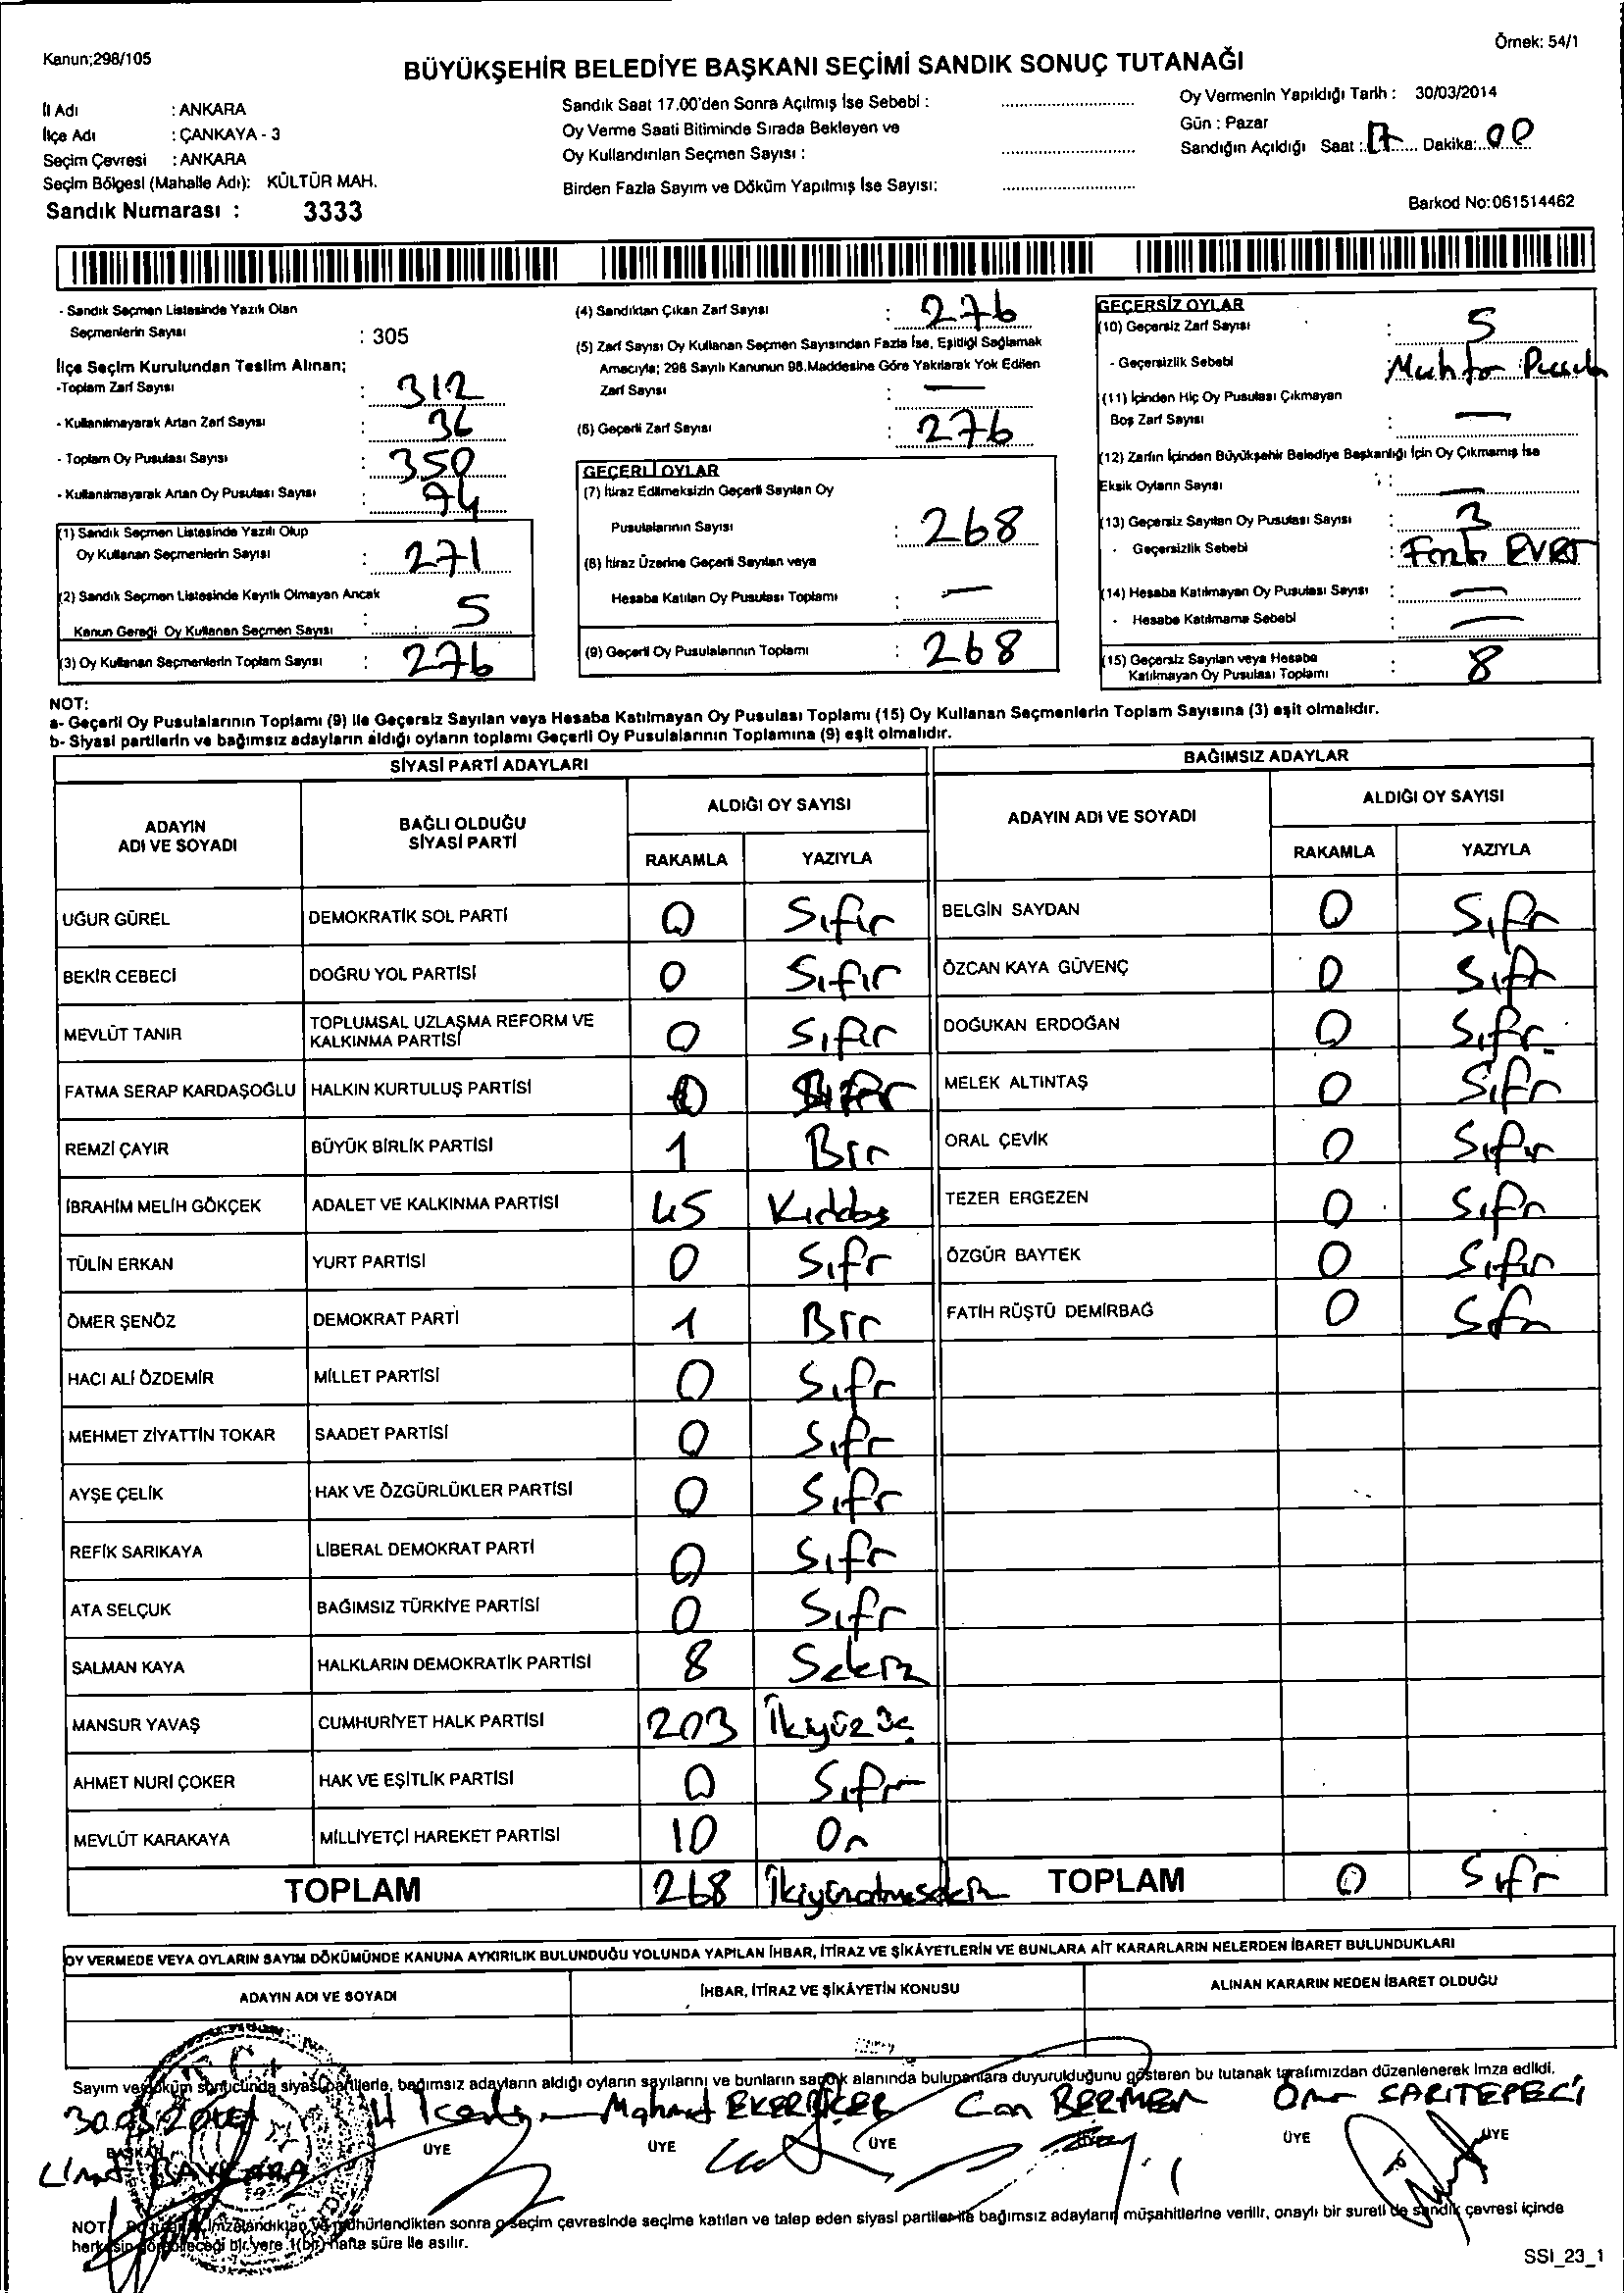 Kanun;298/105
Örnek: 54/1
BÜYÜKŞEHİR BELEDİYE BAŞKANI SEÇİMİ SANDIK SONUÇ TUTANAĞI
İl Adı : ANKARA
İlçe Adı : ÇANKAYA - 3
Seçim Çevresi : ANKARA
Seçim Bölgesi (Mahalle Adı): KÜLTÜR MAH.
Sandık Numarası : 3333
Sandık Saat 17.00'den Sonra Açılmış İse Sebebi :
Oy Verme Saati Bitiminde Sırada Bekleyen ve
Oy Kullandırılan Seçmen Sayısı :
Birden Fazla Sayım ve Döküm Yapılmış İse Sayısı:
Oy Vermenin Yapıldığı Tarih : 30/03/2014
Gün : Pazar
Sandığın Açıldığı Saat : 17 Dakika: 00
Barkod No:061514462
- Sandık Seçmen Listesinde Yazılı Olan
Seçmenlerin Sayısı : 305
İlçe Seçim Kurulundan Teslim Alınan;
-Toplam Zarf Sayısı : 312
- Kullanılmayarak Artan Zarf Sayısı : 36
- Toplam Oy Pusulası Sayısı : 350
- Kullanılmayarak Artan Oy Pusulası Sayısı : 74
(1) Sandık Seçmen Listesinde Yazılı Olup
Oy Kullanan Seçmenlerin Sayısı : 271
(2) Sandık Seçmen Listesinde Kayıtlı Olmayan Ancak
Kanun Gereği Oy Kullanan Seçmen Sayısı : 5
(3) Oy Kullanan Seçmenlerin Toplam Sayısı : 276
(4) Sandıktan Çıkan Zarf Sayısı : 276
(5) Zarf Sayısı Oy Kullanan Seçmen Sayısından Fazla İse, Eşitliği Sağlamak
Amacıyla; 298 Sayılı Kanunun 98.Maddesine Göre Yakılarak Yok Edilen
Zarf Sayısı : —
(6) Geçerli Zarf Sayısı : 276
GEÇERLİ OYLAR
(7) İtiraz Edilmeksizin Geçerli Sayılan Oy
Pusulalarının Sayısı : 268
(8) İtiraz Üzerine Geçerli Sayılan veya
Hesaba Katılan Oy Pusulası Toplamı : —
(9) Geçerli Oy Pusulalarının Toplamı : 268
GEÇERSİZ OYLAR
(10) Geçersiz Zarf Sayısı : 5
- Geçersizlik Sebebi : Muhtar Pusula
(11) İçinden Hiç Oy Pusulası Çıkmayan
Boş Zarf Sayısı : —
(12) Zarfın İçinden Büyükşehir Belediye Başkanlığı İçin Oy Çıkmamış İse
Eksik Oyların Sayısı : —
(13) Geçersiz Sayılan Oy Pusulası Sayısı : 3
- Geçersizlik Sebebi : EVET
(14) Hesaba Katılmayan Oy Pusulası Sayısı : —
- Hesaba Katılmama Sebebi : —
(15) Geçersiz Sayılan veya Hesaba
Katılmayan Oy Pusulası Toplamı : 8
NOT:
a- Geçerli Oy Pusulalarının Toplamı (9) ile Geçersiz Sayılan veya Hesaba Katılmayan Oy Pusulası Toplamı (15) Oy Kullanan Seçmenlerin Toplam Sayısına (3) eşit olmalıdır.
b- Siyasi partilerin ve bağımsız adayların aldığı oyların toplamı Geçerli Oy Pusulalarının Toplamına (9) eşit olmalıdır.
SİYASİ PARTİ ADAYLARI
ADAYIN ADI VE SOYADI
BAĞLI OLDUĞU SİYASİ PARTİ
ALDIĞI OY SAYISI
RAKAMLA YAZIYLA
UĞUR GÜREL DEMOKRATİK SOL PARTİ 0 Sıfır
BEKİR CEBECİ DOĞRU YOL PARTİSİ 0 Sıfır
MEVLÜT TANIR TOPLUMSAL UZLAŞMA REFORM VE KALKINMA PARTİSİ 0 Sıfır
FATMA SERAP KARDAŞOĞLU HALKIN KURTULUŞ PARTİSİ 0 Sıfır
REMZİ ÇAYIR BÜYÜK BİRLİK PARTİSİ 1 Bir
İBRAHİM MELİH GÖKÇEK ADALET VE KALKINMA PARTİSİ 45 Kırkbeş
TÜLİN ERKAN YURT PARTİSİ 0 Sıfır
ÖMER ŞENÖZ DEMOKRAT PARTİ 1 Bir
HACI ALİ ÖZDEMİR MİLLET PARTİSİ 0 Sıfır
MEHMET ZİYATTİN TOKAR SAADET PARTİSİ 0 Sıfır
AYŞE ÇELİK HAK VE ÖZGÜRLÜKLER PARTİSİ 0 Sıfır
REFİK SARIKAYA LİBERAL DEMOKRAT PARTİ 0 Sıfır
ATA SELÇUK BAĞIMSIZ TÜRKİYE PARTİSİ 0 Sıfır
SALMAN KAYA HALKLARIN DEMOKRATİK PARTİSİ 8 Sekiz
MANSUR YAVAŞ CUMHURİYET HALK PARTİSİ 203 İkiyüz üç
AHMET NURİ ÇOKER HAK VE EŞİTLİK PARTİSİ 0 Sıfır
MEVLÜT KARAKAYA MİLLİYETÇİ HAREKET PARTİSİ 10 On
TOPLAM 268 İkiyüzaltmışsekiz
BAĞIMSIZ ADAYLAR
ADAYIN ADI VE SOYADI
ALDIĞI OY SAYISI
RAKAMLA YAZIYLA
BELGİN SAYDAN 0 Sıfır
ÖZCAN KAYA GÜVENÇ 0 Sıfır
DOĞUKAN ERDOĞAN 0 Sıfır
MELEK ALTINTAŞ 0 Sıfır
ORAL ÇEVİK 0 Sıfır
TEZER ERGEZEN 0 Sıfır
ÖZGÜR BAYTEK 0 Sıfır
FATİH RÜŞTÜ DEMİRBAĞ 0 Sıfır
TOPLAM 0 Sıfır
OY VERMEDE VEYA OYLARIN SAYIM DÖKÜMÜNDE KANUNA AYKIRILIK BULUNDUĞU YOLUNDA YAPILAN İHBAR, İTİRAZ VE ŞİKÂYETLERİN VE BUNLARA AİT KARARLARIN NELERDEN İBARET BULUNDUKLARI
ADAYIN ADI VE SOYADI
İHBAR, İTİRAZ VE ŞİKÂYETİN KONUSU
ALINAN KARARIN NEDEN İBARET OLDUĞU
Sayım ve döküm sonucunda siyasi partilerle, bağımsız adayların aldığı oyların sayılarını ve bunların sandık alanında bulunanlara duyurulduğunu gösteren bu tutanak tarafımızdan düzenlenerek imza edildi.
30.03.2014 Mahmut Can BERMEN SARITEPECİ
BAŞKAN ÜYE ÜYE ÜYE ÜYE ÜYE
BAYKARA
NOT: Bu tutanak, imzalandıktan ve mühürlendikten sonra o seçim çevresinde seçime katılan ve talep eden siyasi partiler ile bağımsız adayların müşahitlerine verilir, onaylı bir sureti de sandık çevresi içinde
herkesin görebileceği bir yere 1(bir) hafta süre ile asılır.
SSI_23_1